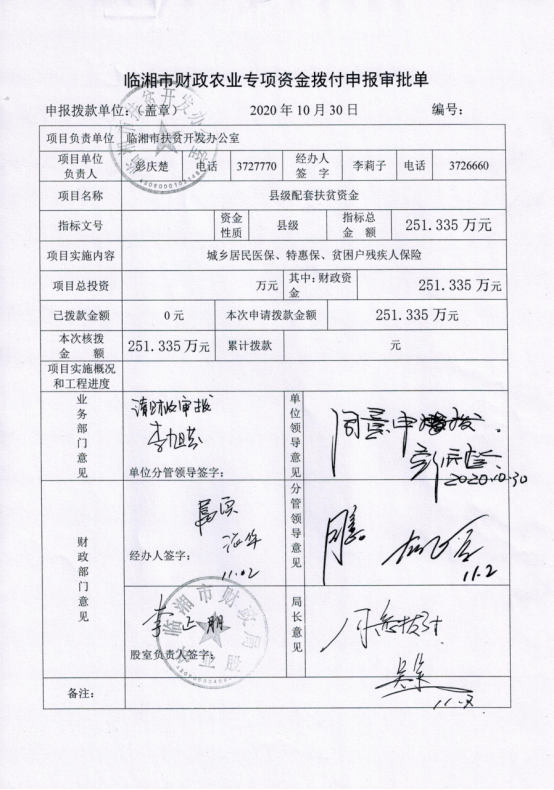 临湘市财政农业专项资金拨付申报审批单
申报拨款单位：（盖章） 2020年10月30日 编号：
项目负责单位 临湘市扶贫开发办公室
项目单位负责人 彭庆楚 电话 3727770 经办人签字 李莉子 电话 3726660
项目名称 县级配套扶贫资金
指标文号 资金性质 县级 指标总金额 251.335万元
项目实施内容 城乡居民医保、特惠保、贫困户残疾人保险
项目总投资 万元 其中：财政资金 251.335万元
已拨款金额 0元 本次申请拨款金额 251.335万元
本次核拨金额 251.335万元 累计拨款 元
项目实施概况和工程进度
业务部门意见 请财政审拨
单位分管领导签字：
单位领导意见 同意申拨
2020.10.30
财政部门意见 属实
经办人签字：
11.02
分管领导意见
11.2
李正明
股室负责人签字：
局长意见
备注：
临湘市扶贫开发办公室
临湘市财政局